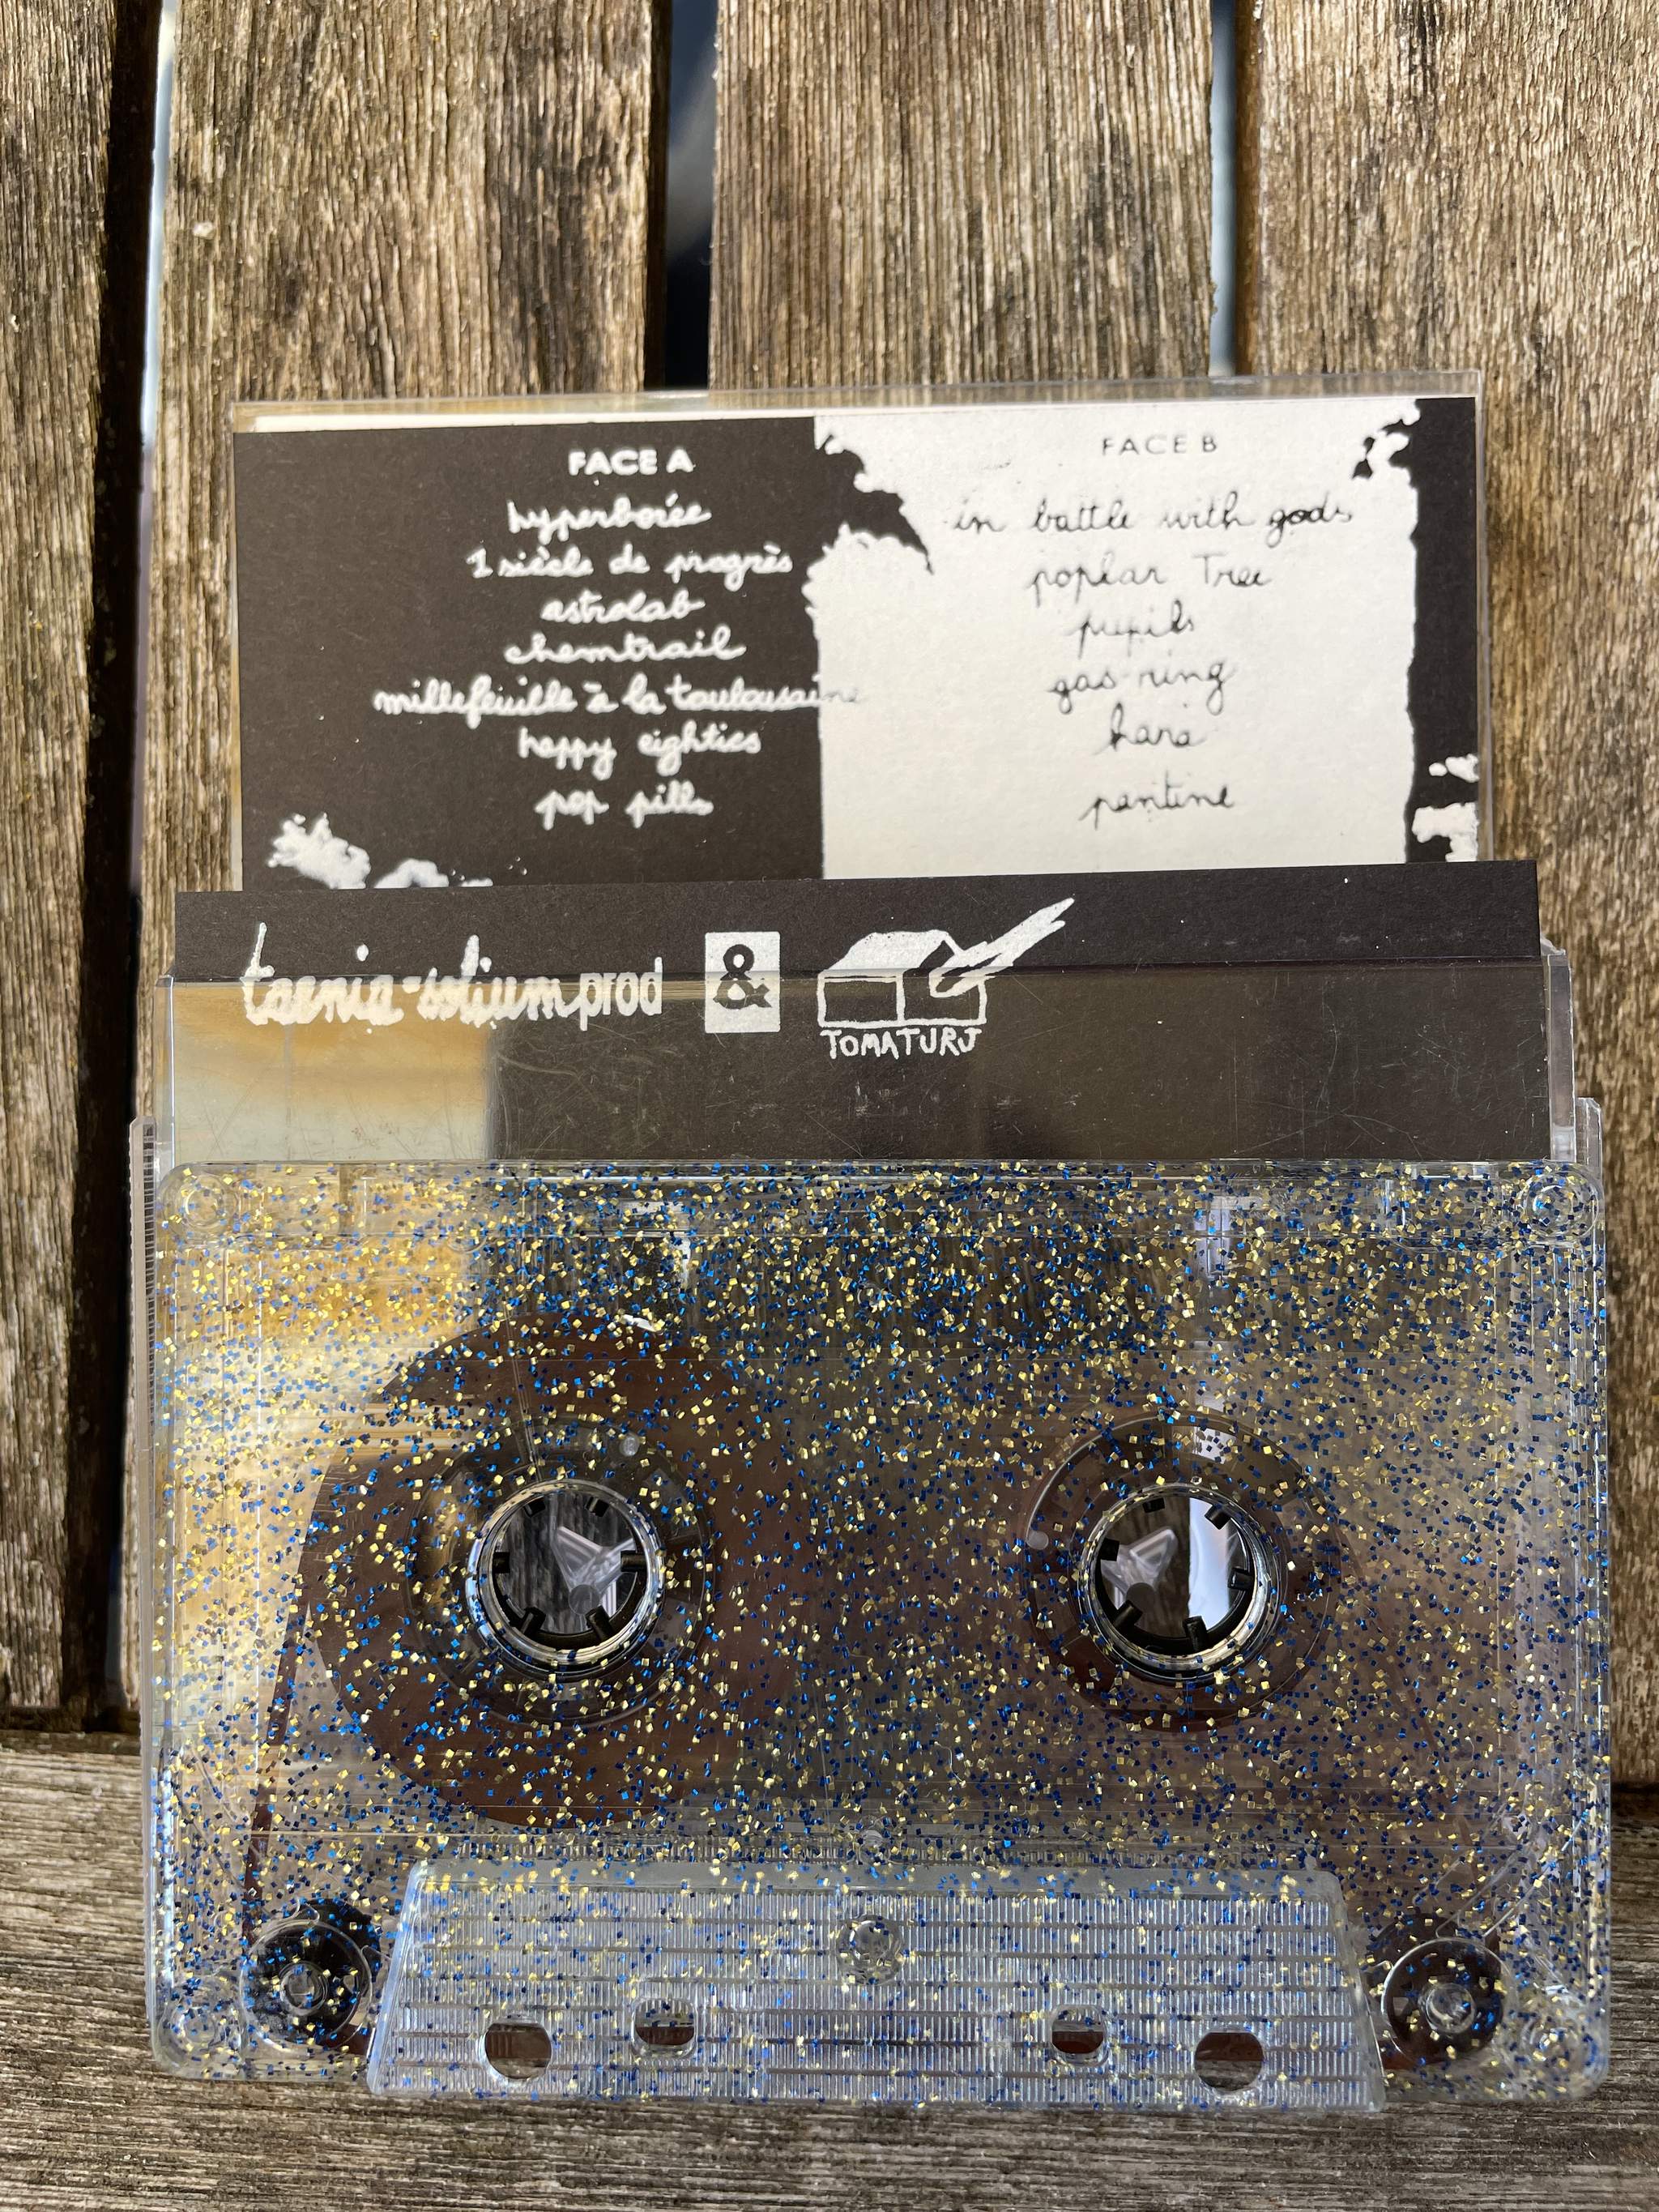 FACE A
hyperborée
1 siècle de progrès
astrolab
chemtrail
millefeuille à la toulousaine
happy eighties
pop pills
FACE B
in battle with gods
poplar Tree
pupils
gas-ring
hara
pantine
taenia-solium prod & TOMATURJ